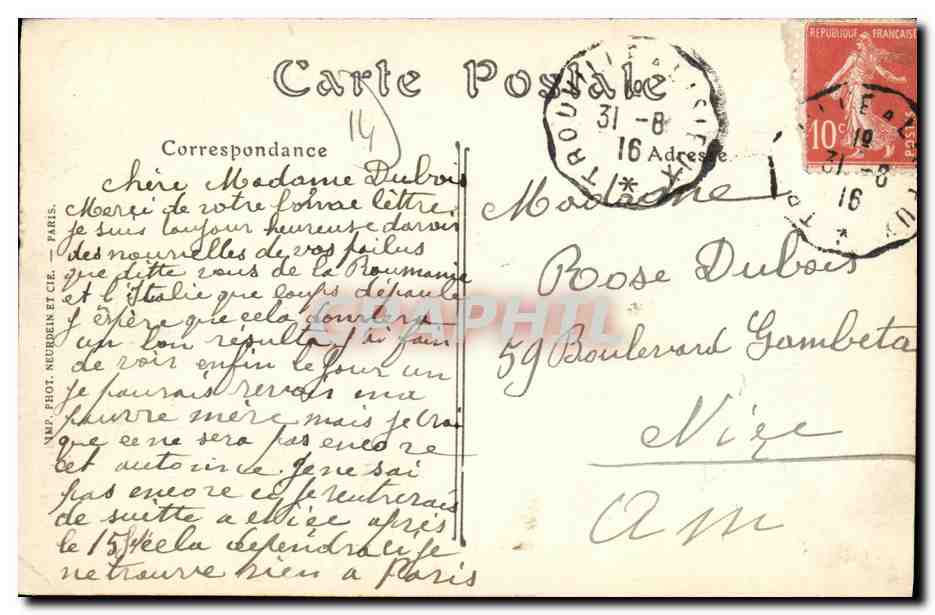 Carte Postale
Correspondance
Adresse
14
RÉPUBLIQUE FRANÇAISE
10c
POSTES
TROUVILLE A LISIEUX
31 -8
16
*
19
31 -8
16
*
chère Madame Dubois
Merçi de votre bonne lettre
je suis toujour heureuse davoir
des nouvelles de vos poilus
que ditte vous de la Roumanie
et l'Italie que coups dépaule
j'espère que cela donnera
un bon résultat j'ai faim
de voir enfin le jour un
je pourais revoir ma
pauvre mère mais je crai
que ce ne sera pas encore
cet automne. Je ne sai
pas encore si je rentrerais
de suitte a Niçe après
le 15 cela dependra si je
ne trouve rien a Paris
Madame
Rose Dubois
59 Boulevard Gambeta
Niçe
A M
IMP. PHOT. NEURDEIN ET CIE. — PARIS.
CPAPHIL